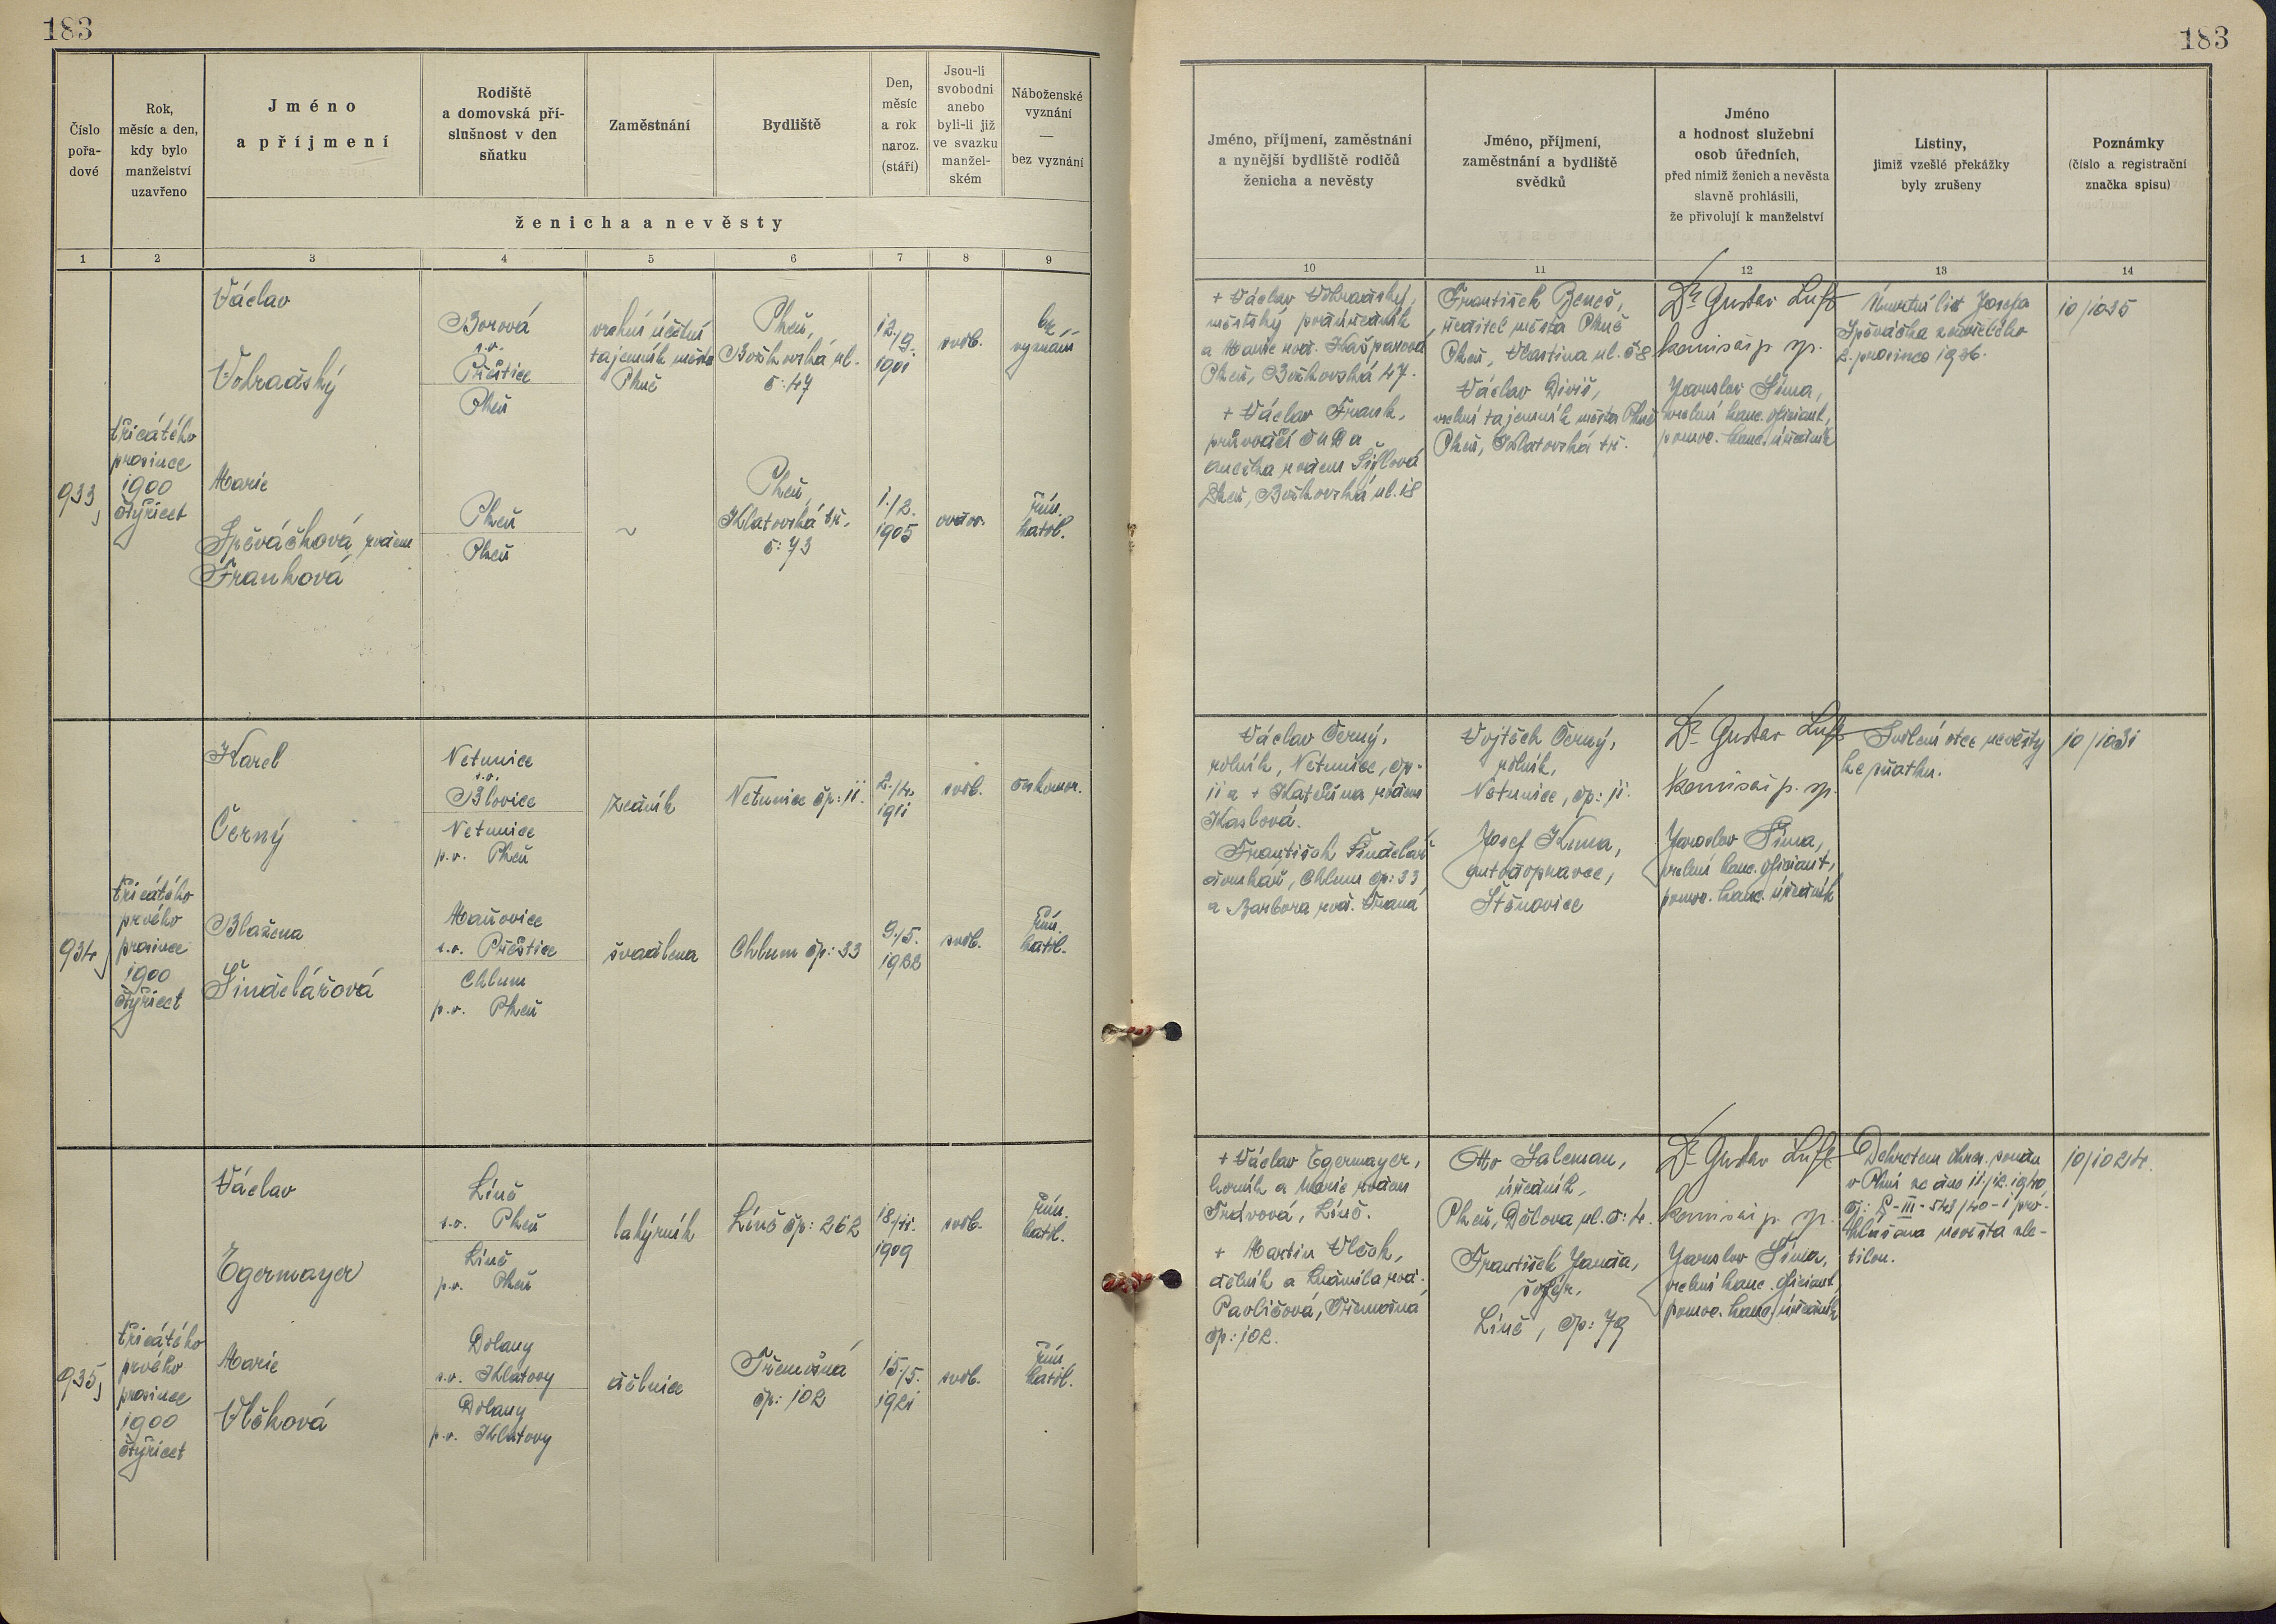 183
183
Číslo
pořa-
dové
Rok,
měsíc a den,
kdy bylo
manželství
uzavřeno
Jméno
a příjmení
Rodiště
a domovská pří-
slušnost v den
sňatku
Zaměstnání
Bydliště
Den,
měsíc
a rok
naroz.
(stáří)
Jsou-li
svobodni
anebo
byli-li již
ve svazku
manžel-
ském
Náboženské
vyznání
—
bez vyznání
ženicha a nevěsty
1 2 3 4 5 6 7 8 9
Jméno, příjmení, zaměstnání
a nynější bydliště rodičů
ženicha a nevěsty
Jméno, příjmení,
zaměstnání a bydliště
svědků
Jméno
a hodnost služební
osob úředních,
před nimiž ženich a nevěsta
slavně prohlásili,
že přivolují k manželství
Listiny,
jimiž vzešlé překážky
byly zrušeny
Poznámky
(číslo a registrační
značka spisu)
10 11 12 13 14
933
třicátého
prosince
1900
čtyřicet
Václav
Vobradský
Borová
s.o.
Přeštice
Plzeň
vrchní účetní
tajemník města
Plzně
Plzeň,
Božkovská ul.
č: 47
12./9.
1901
svob.
bez
vyznání
Marie
Spěváčková rodem
Franková
Plzeň
Plzeň
~
Plzeň
Klatovská tř.
č: 73
1./2.
1905
ovdov.
řím.
katol.
+ Václav Vobradský,
městský podúředník
a Marie rod. Kašparová
Plzeň, Božkovská 47.
+ Václav Frank,
průvodčí ČSD a
Anežka rodem Šiflová
Plzeň, Božkovská ul. 18
František Beneš,
ředitel města Plzně
Plzeň, Martina ul. č 8
Václav Diviš,
vrchní tajemník města Plzně
Plzeň, Klatovská tř.
Dr Gustav Luft
komisař p. sp.
Jaroslav Šíma,
vrchní kanc. oficiant,
pomoc. kanc. úředník
Úmrtní list Josefa
Spěváčka zemřelého
2. prosince 1936.
10/1035
934
třicátého
prvého
prosince
1900
čtyřicet
Karel
Černý
Netunice
s.o.
Blovice
Netunice
p.o. Plzeň
zedník
Netunice čp: 11.
2./4.
1911
svob.
českomor.
Blažena
Šindelářová
Maňovice
s.o. Přeštice
Chlum
p.o. Plzeň
švadlena
Chlum čp: 33
9./5.
1922
svob.
řím.
katol.
Václav Černý,
rolník, Netunice, čp.
11 a + Kateřina rodem
Kaslová.
František Šindelář
domkář, Chlum čp: 33
a Barbora rod.
Vojtěch Černý,
rolník,
Netunice, čp: 11.
Josef Kuma,
autodopravce,
Štěnovice
Dr Gustav Luft
komisař p. sp.
Jaroslav Šíma,
vrchní kanc. oficiant,
pomoc. kanc. úředník
Svolení otce nevěsty
ke sňatku.
10/1031
935
třicátého
prvého
prosince
1900
čtyřicet
Václav
Egermayer
Líně
s.o. Plzeň
Líně
p.o. Plzeň
lahýrník
Líně čp: 262
18/11.
1909
svob.
řím.
katol.
Marie
Vlčková
Dolany
s.o. Klatovy
Dolany
p.o. Klatovy
dělnice
Třemošná
čp: 102
15./5.
1921
svob.
řím.
katol.
+ Václav Egermayer,
horník a Marie rodem
Líně.
+ Martin Vlček,
dělník a Ludmila rod.
Pavličová, Třemošná
čp: 102.
Otto Saleman,
úředník,
Plzeň, Dělova ul. č: 4.
František Janda,
šofér,
Líně, čp: 79
Dr Gustav Luft
komisař p. sp.
Jaroslav Šíma,
vrchní kanc. oficiant,
pomoc. kanc. úředník
Dekretem okres. soudu
v Plzni ze dne 11./12. 1940
čj: P-III-548/40-1 pro-
hlášena nevěsta zle-
tilou.
10/1024.